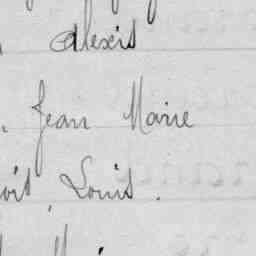 Alexis
, Jean Marie
ois, Louis.